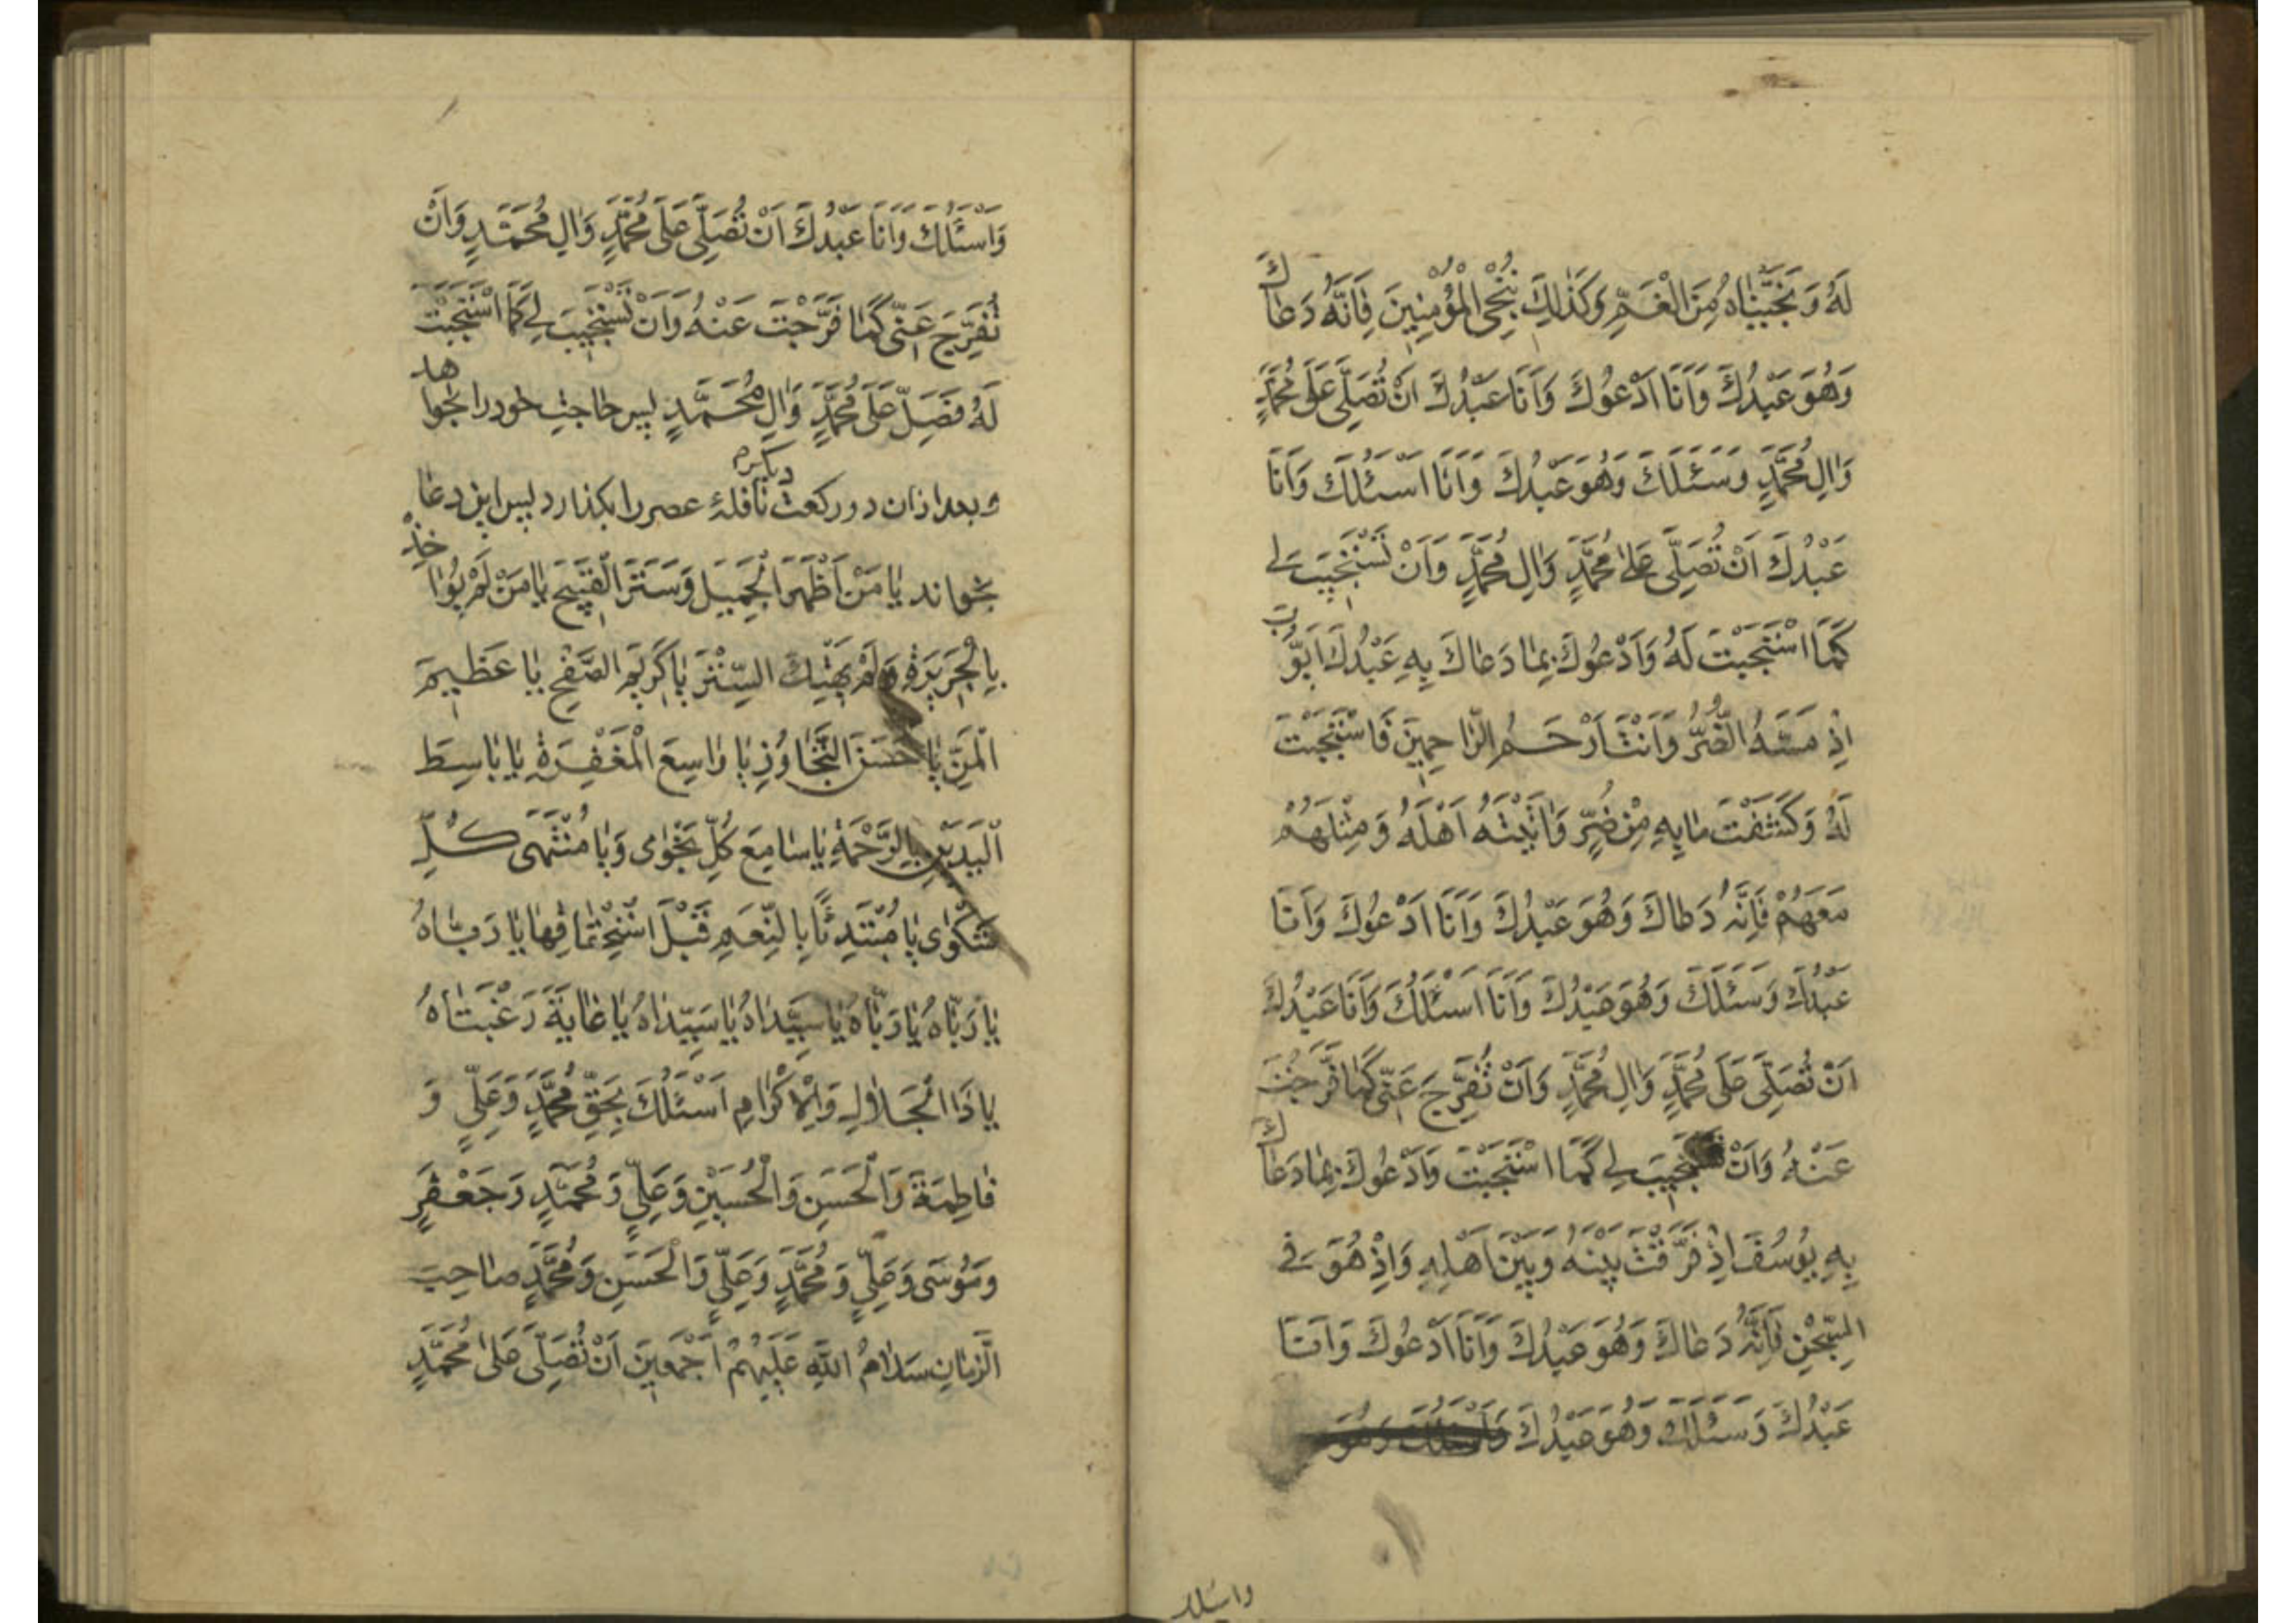 لَهُ وَ نَجَّيْنَاهُ مِنَ الْغَمِّ وَكَذٰلِكَ نُنْجِى الْمُؤْمِنِينَ فَاِنَّهُ دَعَاكَ
وَهُوَ عَبْدُكَ وَاَنَا اَدْعُوكَ وَاَنَا عَبْدُكَ اَنْ تُصَلِّىَ عَلٰى مُحَمَّدٍ
وَالِ مُحَمَّدٍ وَسَئَلَكَ وَهُوَ عَبْدُكَ وَاَنَا اَسْئَلُكَ وَاَنَا
عَبْدُكَ اَنْ تُصَلِّىَ عَلٰى مُحَمَّدٍ وَالِ مُحَمَّدٍ وَاَنْ تَسْتَجِيبَ لِى
كَمَا اسْتَجَبْتَ لَهُ وَاَدْعُوكَ بِمَا دَعَاكَ بِهِ عَبْدُكَ اَيُّوبَ
اِذْ مَسَّهُ الضُّرُّ وَاَنْتَ اَرْحَمُ الرَّاحِمِينَ فَاسْتَجَبْتَ
لَهُ وَكَشَفْتَ مَا بِهِ مِنْ ضُرٍّ وَاٰتَيْتَهُ اَهْلَهُ وَمِثْلَهُمْ
مَعَهُمْ فَاِنَّهُ دَعَاكَ وَهُوَ عَبْدُكَ وَاَنَا اَدْعُوكَ وَاَنَا
عَبْدُكَ وَسَئَلَكَ وَهُوَ عَبْدُكَ وَاَنَا اَسْئَلُكَ وَاَنَا عَبْدُكَ
اَنْ تُصَلِّىَ عَلٰى مُحَمَّدٍ وَالِ مُحَمَّدٍ وَاَنْ تُفَرِّجَ عَنِّى كَمَا فَرَّجْتَ
عَنْهُ وَاَنْ تَسْتَجِيبَ لِى كَمَا اسْتَجَبْتَ وَاَدْعُوكَ بِمَا دَعَاكَ
بِهِ يُوسُفَ اِذْ فَرَّقْتَ بَيْنَهُ وَبَيْنَ اَهْلِهِ وَاِذْ هُوَ فِى
السِّجْنِ فَاِنَّهُ دَعَاكَ وَهُوَ عَبْدُكَ وَاَنَا اَدْعُوكَ وَاَنَا
عَبْدُكَ وَسَئَلَكَ وَهُوَ عَبْدُكَ وَاَسْئَلُكَ وَهُوَ
واسئلك
وَاَسْئَلُكَ وَاَنَا عَبْدُكَ اَنْ تُصَلِّىَ عَلٰى مُحَمَّدٍ وَالِ مُحَمَّدٍ وَاَنْ
تُفَرِّجَ عَنِّى كَمَا فَرَّجْتَ عَنْهُ وَاَنْ تَسْتَجِيبَ لِى كَمَا اسْتَجَبْتَ
لَهُ فَصَلِّ عَلٰى مُحَمَّدٍ وَالِ مُحَمَّدٍ پس حاجت خود را بخواهد
و بعد از ان دو ركعت ديگر نافلهٔ عصر را بگذارد پس اين دعا
بخواند يَا مَنْ اَظْهَرَ الْجَمِيلَ وَسَتَرَ الْقَبِيحَ يَا مَنْ لَمْ يُؤَاخِذْ
بِالْجَرِيرَةِ وَلَمْ يَهْتِكَ السِّتْرَ يَا كَرِيمَ الصَّفْحِ يَا عَظِيمَ
الْمَنِّ يَا حَسَنَ التَّجَاوُزِ يَا وَاسِعَ الْمَغْفِرَةِ يَا بَاسِطَ
الْيَدَيْنِ بِالرَّحْمَةِ يَا سَامِعَ كُلِّ نَجْوٰى وَيَا مُنْتَهٰى كُلِّ
شَكْوٰى يَا مُبْتَدِئًا بِالنِّعَمِ قَبْلَ اسْتِحْقَاقِهَا يَا رَبَّاهُ
يَا رَبَّاهُ يَا رَبَّاهُ يَا سَيِّدَاهُ يَا سَيِّدَاهُ يَا غَايَةَ رَغْبَتَاهُ
يَا ذَا الْجَلَالِ وَالْاِكْرَامِ اَسْئَلُكَ بِحَقِّ مُحَمَّدٍ وَعَلِىٍّ وَ
فَاطِمَةَ وَالْحَسَنِ وَالْحُسَيْنِ وَعَلِىٍّ وَمُحَمَّدٍ وَجَعْفَرٍ
وَمُوسٰى وَعَلِىٍّ وَمُحَمَّدٍ وَعَلِىٍّ وَالْحَسَنِ وَمُحَمَّدٍ صَاحِبَ
الزَّمَانِ سَلَامُ اللّٰهِ عَلَيْهِمْ اَجْمَعِينَ اَنْ تُصَلِّىَ عَلٰى مُحَمَّدٍ